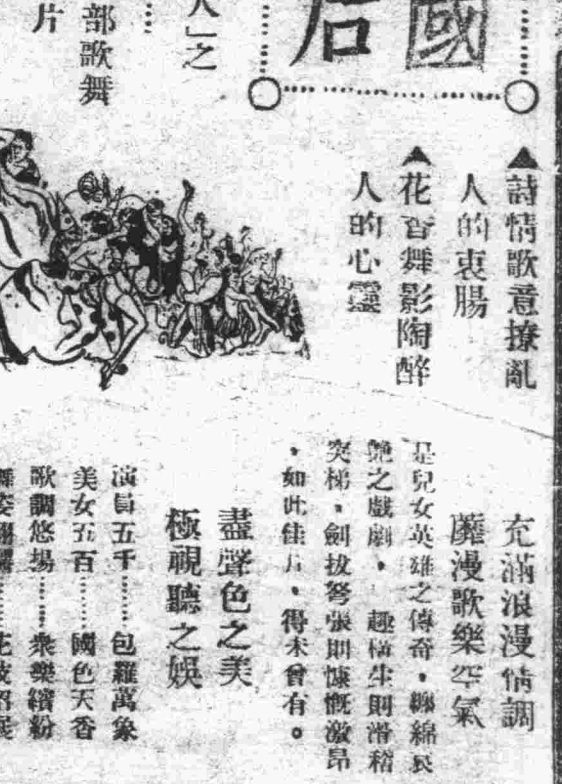 國
后
人」之
部歌舞
片
▲詩情歌意撩亂
人的衷腸
▲花香舞影陶醉
人的心靈
充滿浪漫情調
靡漫歌樂空氣
是兒女英雄之傳奇，纏綿哀
艷之戲劇，趣橫生則滑稽
突梯，劍拔弩張則慷慨激昂
，如此佳片，得未曾有。
盡聲色之美
極視聽之娛
演員五千……包羅萬象
美女五百……國色天香
歌調悠揚……衆樂繽紛
舞姿翩躚……花枝招展